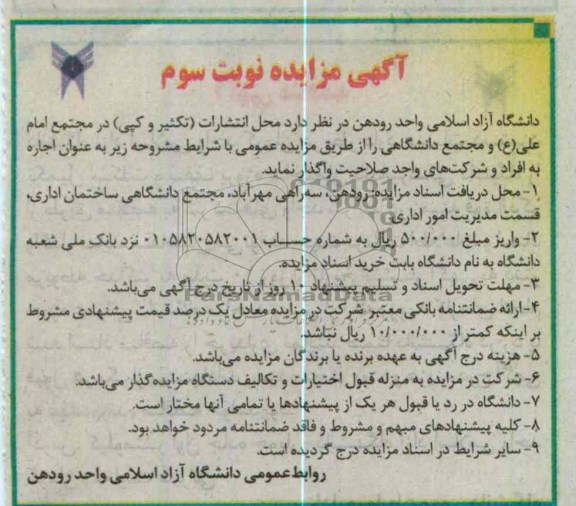 آگهی مزایده نوبت سوم
دانشگاه آزاد اسلامی واحد رودهن در نظر دارد محل انتشارات (تکثیر و کپی) در مجتمع امام
علی(ع) و مجتمع دانشگاهی را از طریق مزایده عمومی با شرایط مشروحه زیر به عنوان اجاره
به افراد و شرکت‌های واجد صلاحیت واگذار نماید.
۱- محل دریافت اسناد مزایده: رودهن، سه‌راهی مهرآباد، مجتمع دانشگاهی ساختمان اداری،
قسمت مدیریت امور اداری
۲- واریز مبلغ ۵۰۰/۰۰۰ ریال به شماره حساب ۰۱۰۵۸۲۰۵۸۲۰۰۱ نزد بانک ملی شعبه
دانشگاه به نام دانشگاه بابت خرید اسناد مزایده.
۳- مهلت تحویل اسناد و تسلیم پیشنهاد ۱۰ روز از تاریخ درج آگهی می‌باشد.
ParsNamadData
۴- ارائه ضمانتنامه بانکی معتبر شرکت در مزایده معادل یک درصد قیمت پیشنهادی مشروط
بر اینکه کمتر از ۱۰/۰۰۰/۰۰۰ ریال نباشد.
۵- هزینه درج آگهی به عهده برنده یا برندگان مزایده می‌باشد.
۶- شرکت در مزایده به منزله قبول اختیارات و تکالیف دستگاه مزایده‌گذار می‌باشد.
۷- دانشگاه در رد یا قبول هر یک از پیشنهادها یا تمامی آنها مختار است.
۸- کلیه پیشنهادهای مبهم و مشروط و فاقد ضمانتنامه مردود خواهد بود.
۹- سایر شرایط در اسناد مزایده درج گردیده است.
روابط عمومی دانشگاه آزاد اسلامی واحد رودهن